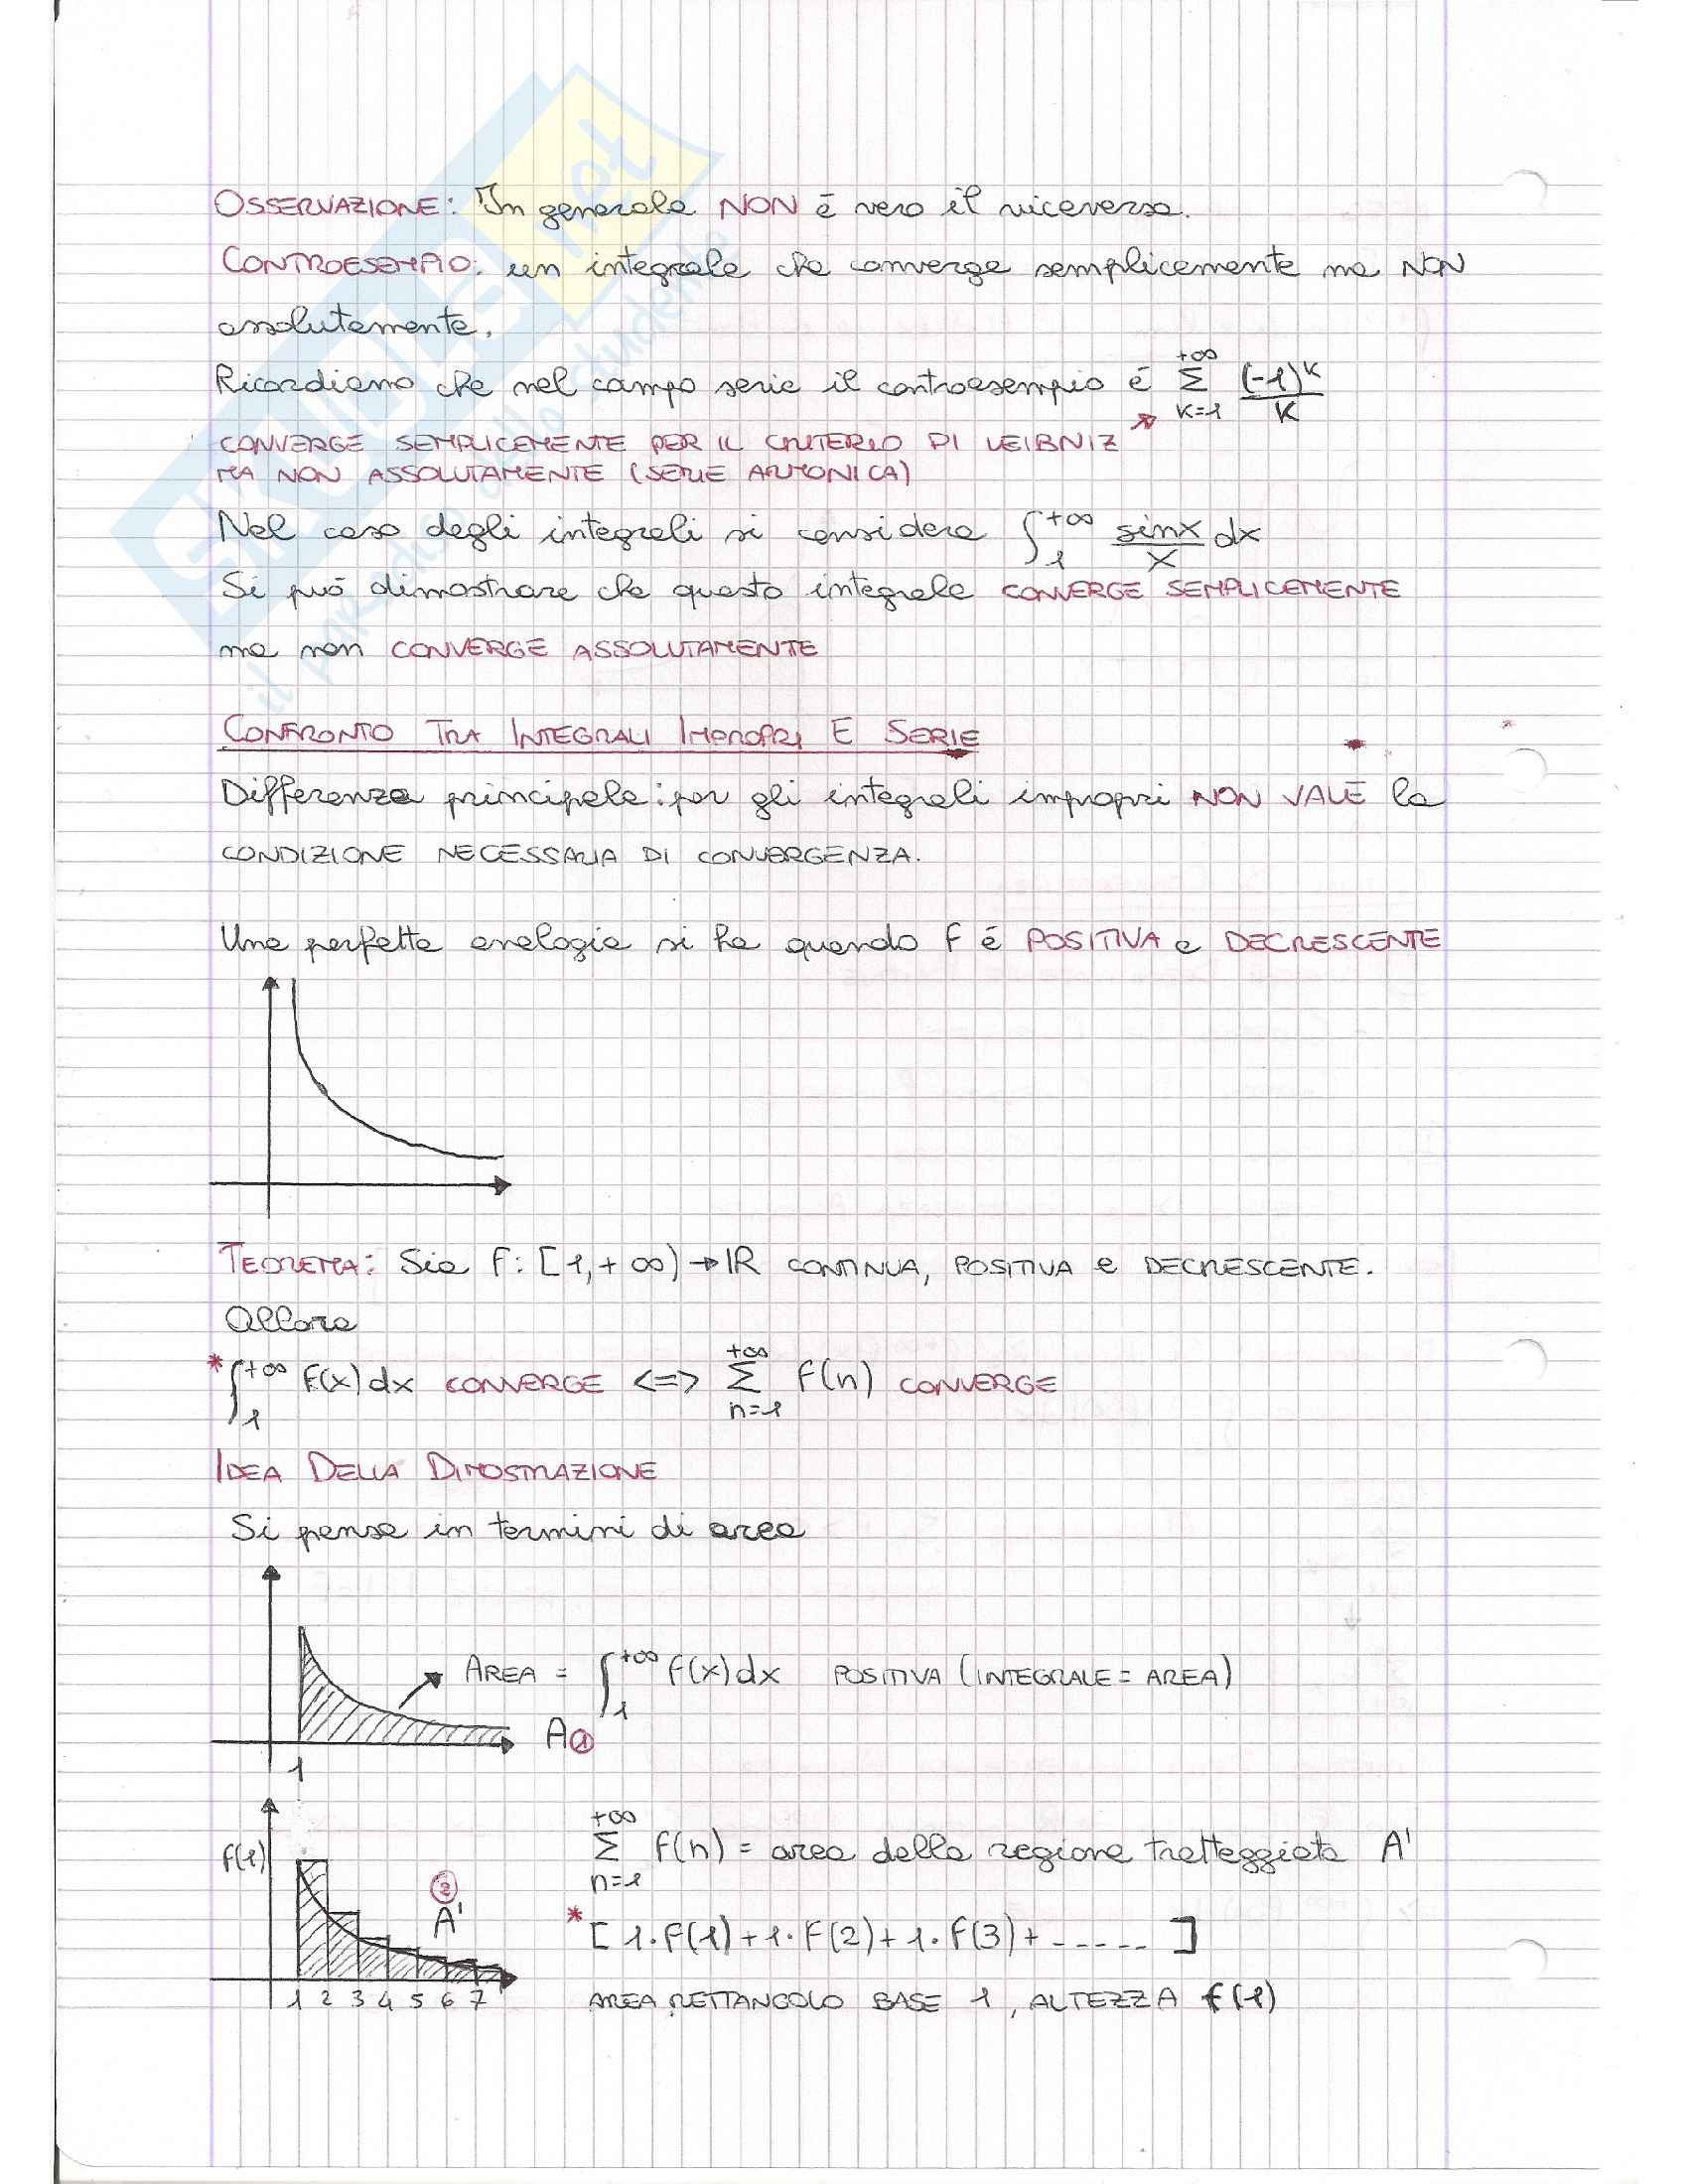 OSSERVAZIONE: In generale NON é vero il viceversa.
CONTROESEMPIO: un integrale che converge semplicemente ma NON
assolutamente.
Ricordiamo che nel campo serie il controesempio é +∞ Σ k=1 (-1)^k / k
CONVERGE SEMPLICEMENTE PER IL CRITERIO DI LEIBNIZ
MA NON ASSOLUTAMENTE (SERIE ARMONICA)
Nel caso degli integrali si considera ∫ 1 +∞ sinx / x dx
Si può dimostrare che questo integrale CONVERGE SEMPLICEMENTE
ma non CONVERGE ASSOLUTAMENTE
CONFRONTO TRA INTEGRALI IMPROPRI E SERIE
Differenza principale: per gli integrali impropri NON VALE la
CONDIZIONE NECESSARIA DI CONVERGENZA.
Una perfetta analogia si ha quando f é POSITIVA e DECRESCENTE
TEOREMA: Sia f: [1,+∞) → ℝ CONTINUA, POSITIVA e DECRESCENTE.
Allora
* ∫ 1 +∞ f(x) dx CONVERGE <=> +∞ Σ n=1 f(n) CONVERGE
IDEA DELLA DIMOSTRAZIONE
Si pensa in termini di area
AREA = ∫ 1 +∞ f(x) dx POSITIVA (INTEGRALE = AREA)
A ①
1
+∞ Σ n=1 f(n) = area della regione tratteggiata A'
f(1)
② A'
* [ 1·f(1)+1·f(2)+1·f(3)+ ----- ]
1 2 3 4 5 6 7
AREA RETTANGOLO BASE 1, ALTEZZA f(1)
SKUOLA.net
il paradiso dello studente